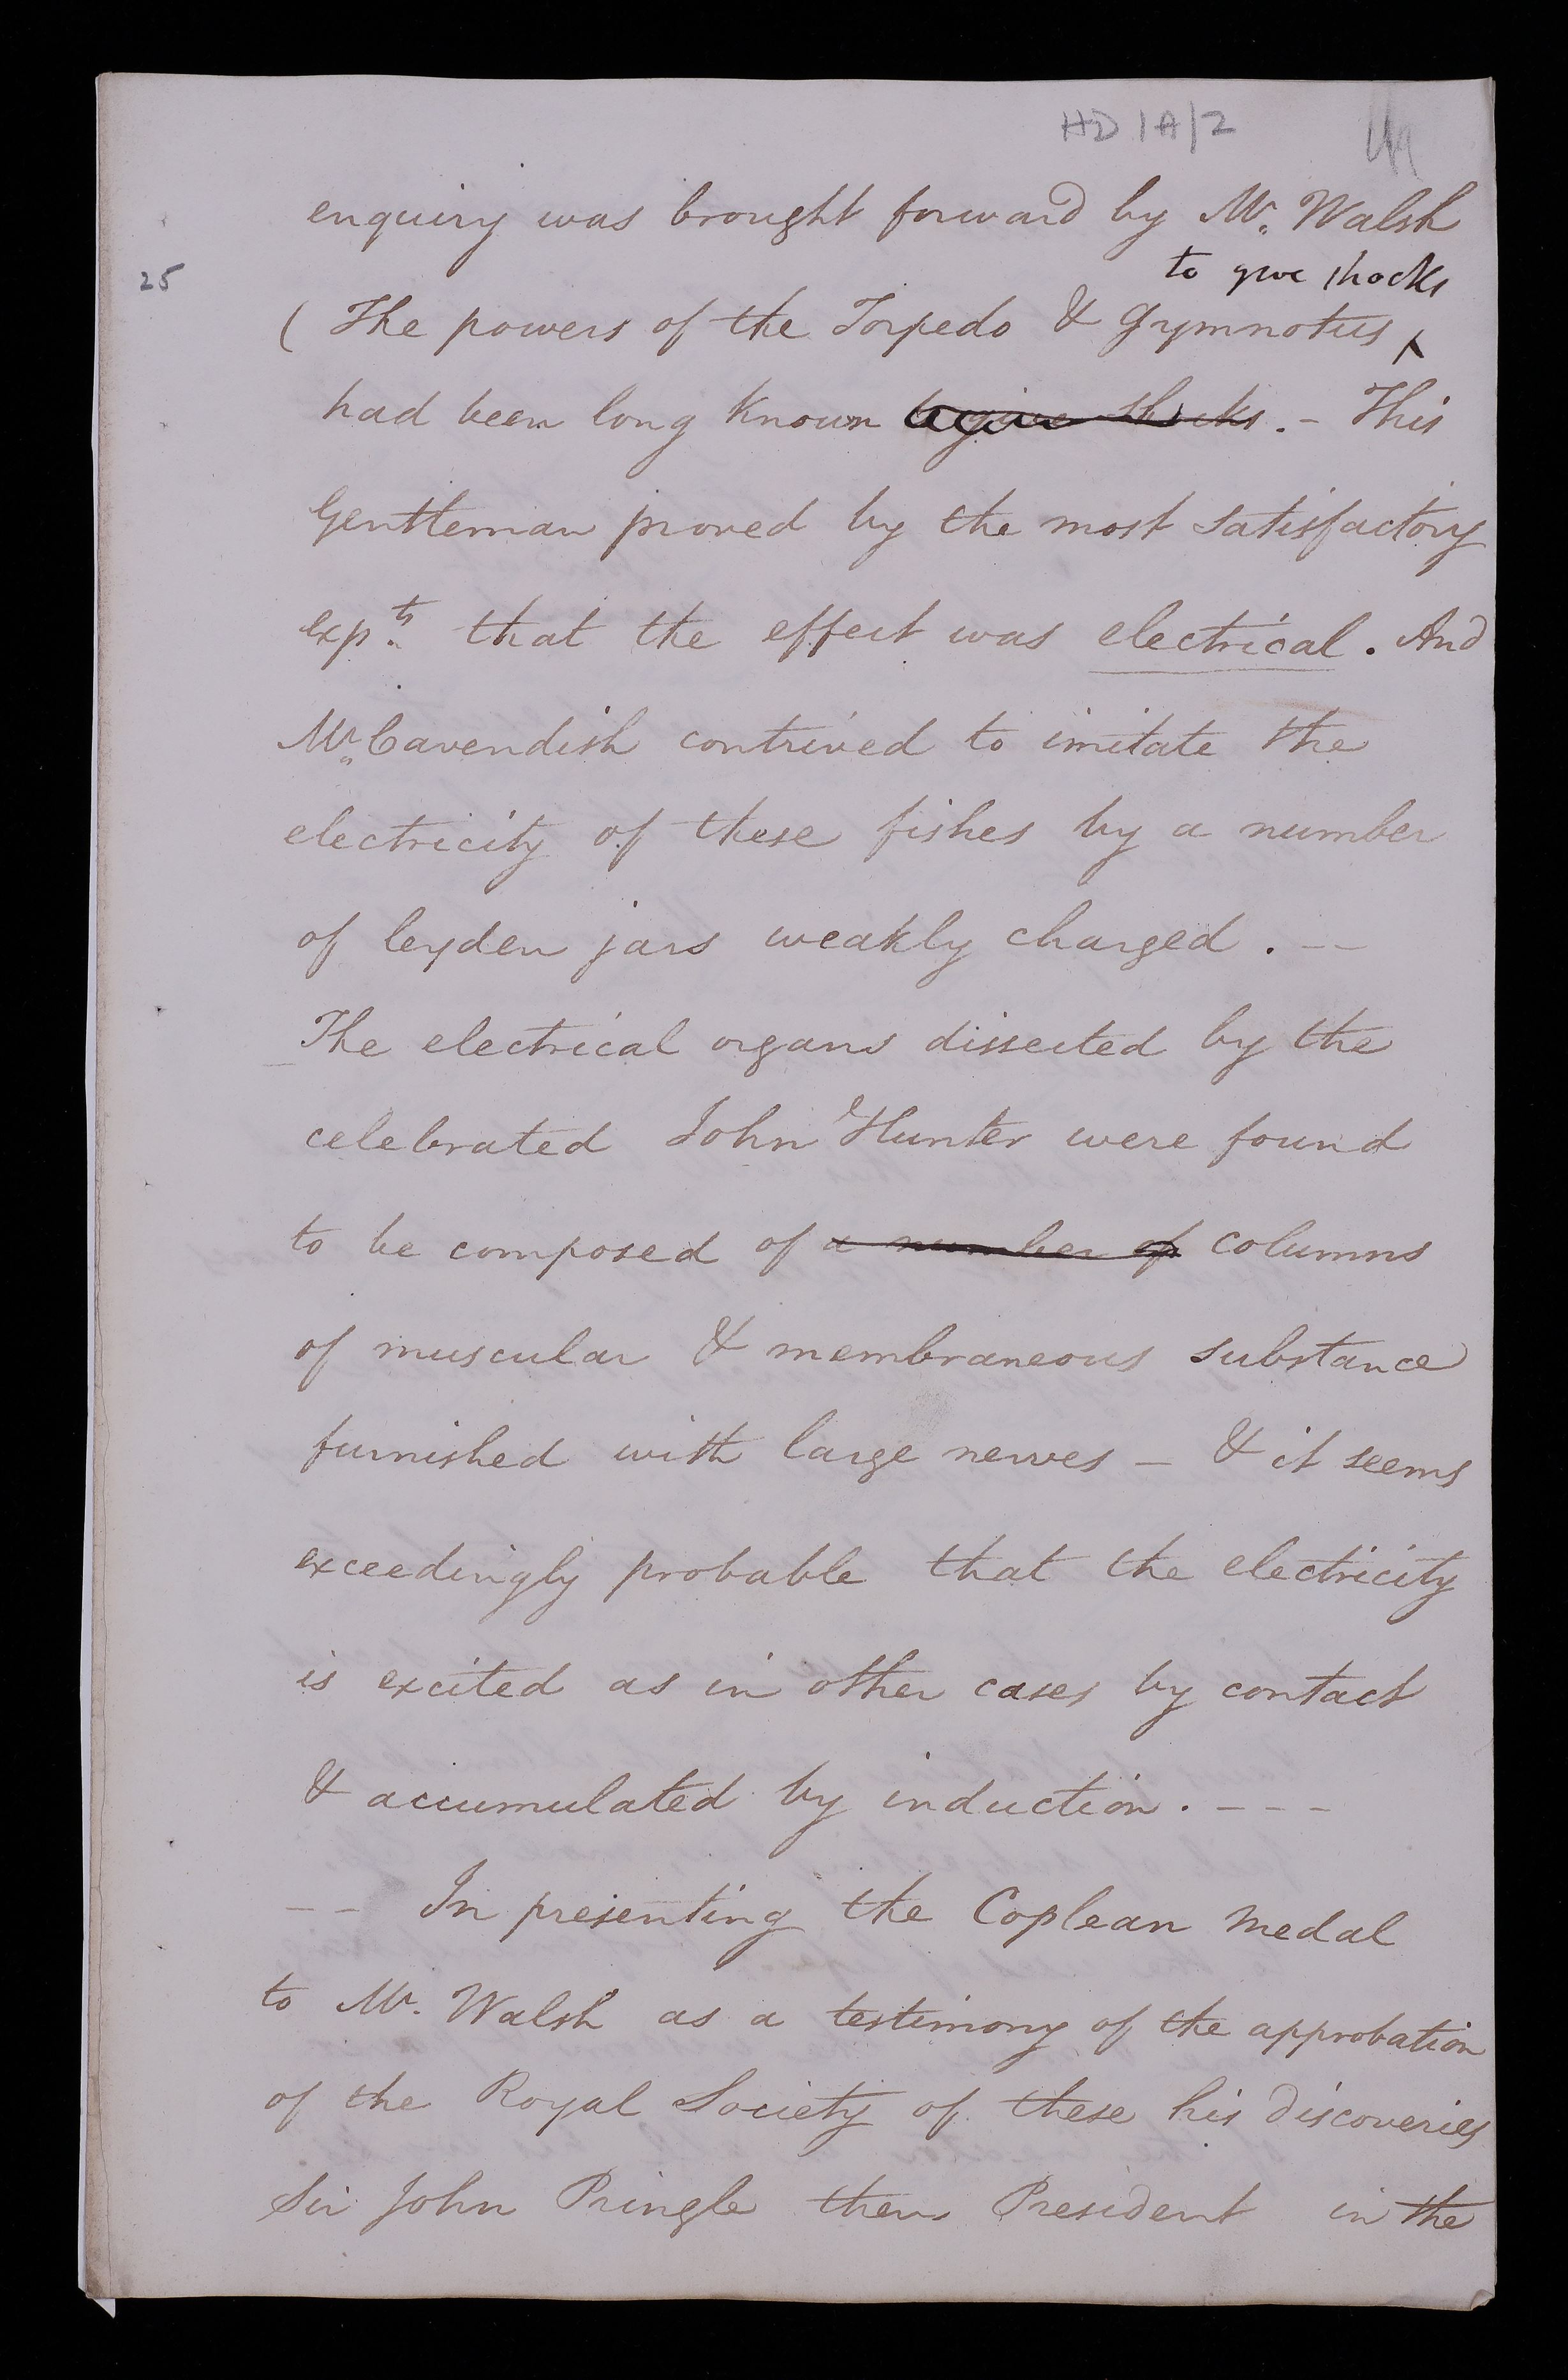 HD 1A/2
enquiry was brought forward by Mr. Walsh
to give shocks
25
( The powers of the Torpedo & Gymnotus ^
had been long known to give shocks. - This
Gentleman proved by the most satisfactory
expts. that the effect was electrical. And
Mr. Cavendish contrived to imitate the
electricity of these fishes by a number
of leyden jars weakly charged. --
The electrical organs dissected by the
celebrated John Hunter were found
to be composed of a number of columns
of muscular & membraneous substance
furnished with large nerves - & it seems
exceedingly probable that the electricity
is excited as in other cases by contact
& accumulated by induction. ---
-- In presenting the Coplean medal
to Mr. Walsh as a testimony of the approbation
of the Royal Society of these his discoveries
Sir John Pringle then President in the